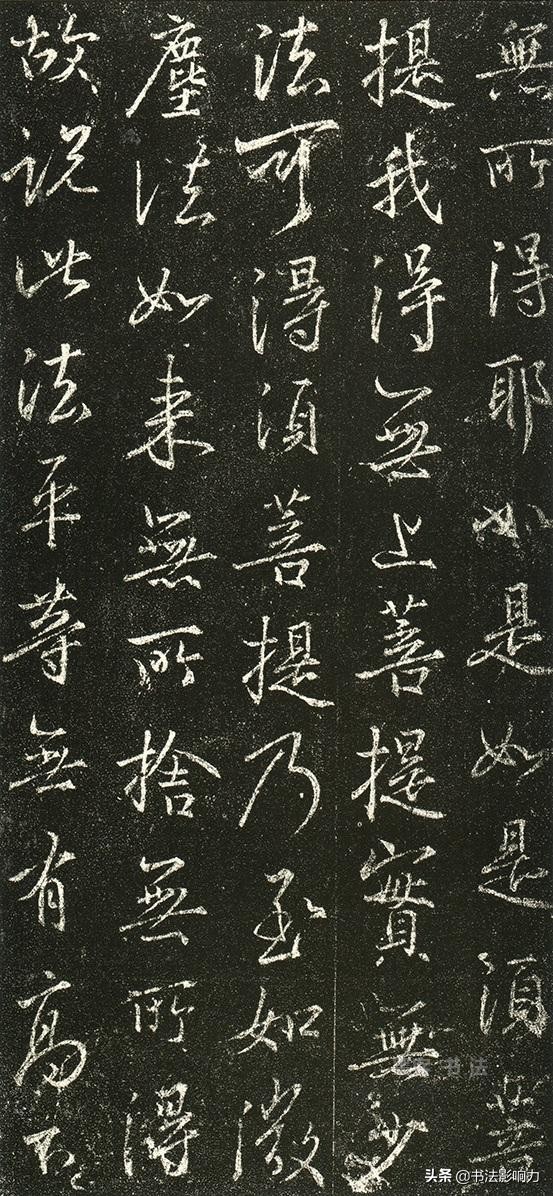 無所得耶如是如是須菩
提我得無上菩提實無少
法可得須菩提乃至如微
塵法如来無所捨無所得
故説此法平等無有高下
书法
头条 @书法影响力